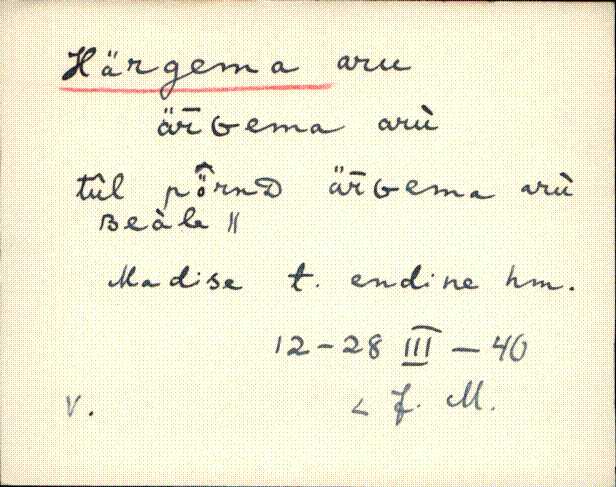 Härgema aru
är̄ɢema arù
tûl pö̂rnᴅ är̄ɢema arù
ʙeàla "
Madise t. endine hm.
12-28 III - 40
V. < J. M.